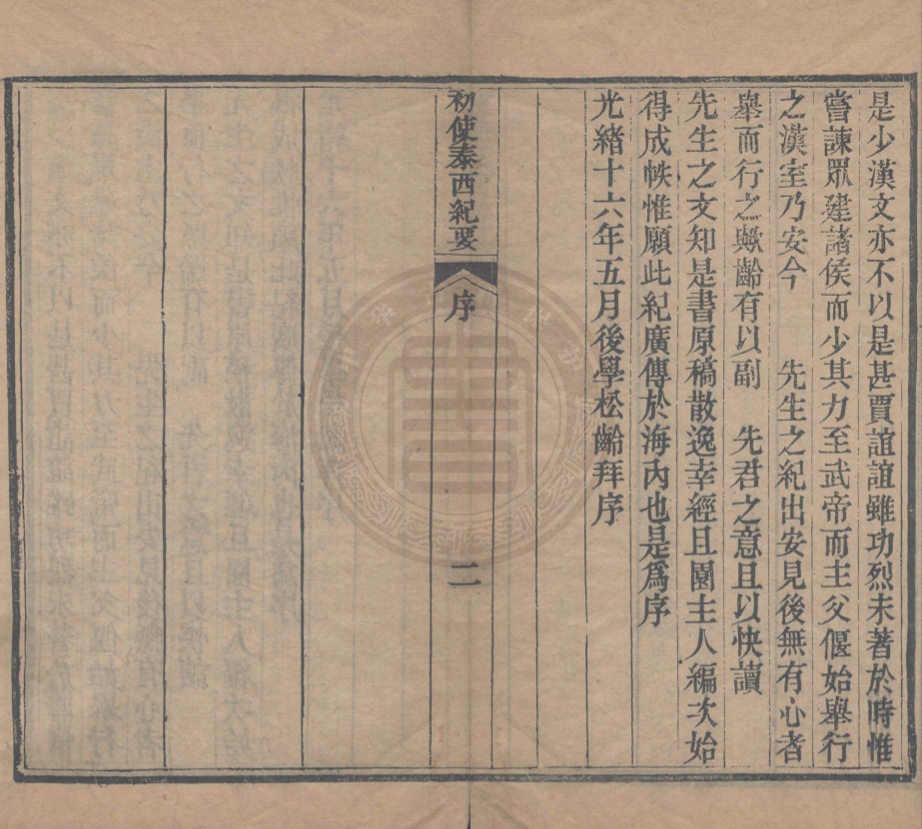 是少漢文亦不以是甚賈誼誼雖功烈未著於時惟
嘗諫眾建諸侯而少其力至武帝而主父偃始舉行
之漢室乃安今　先生之紀出安見後無有心者
舉而行之歟齡有以副　先君之意且以快讀
先生之文知是書原稿散逸幸經且園主人編次始
得成帙惟願此紀廣傳於海內也是爲序
光緒十六年五月後學松齡拜序
初使泰西紀要
序
二